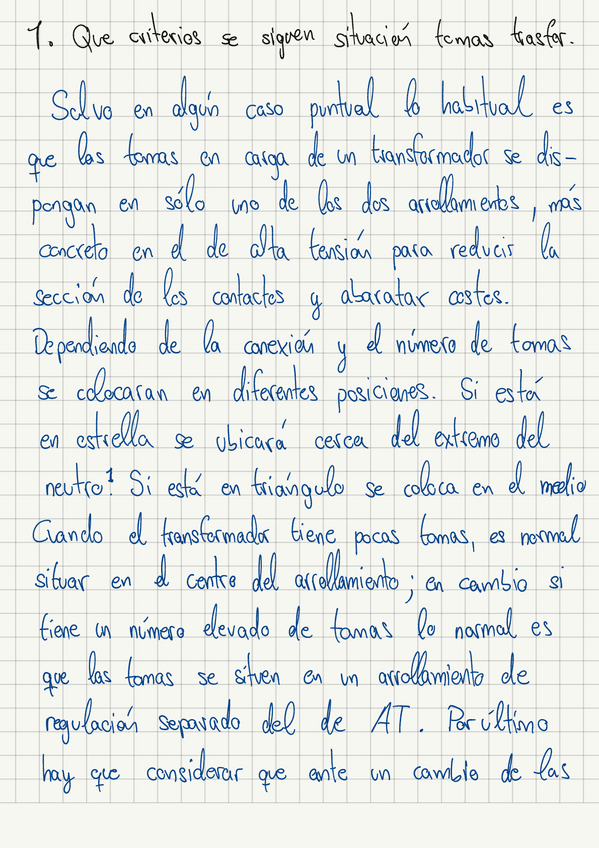 1. Que criterios se siguen situación tomas trasfor.
Salvo en algún caso puntual lo habitual es
que las tomas en carga de un transformador se dis-
pongan en sólo uno de los dos arrollamientos, más
concreto en el de alta tensión para reducir la
sección de los contactos y abaratar costes.
Dependiendo de la conexión y el número de tomas
se colocaran en diferentes posiciones. Si está
en estrella se ubicará cerca del extremo del
neutro¹. Si está en triángulo se coloca en el medio
Cuando el transformador tiene pocas tomas, es normal
situar en el centro del arrollamiento; en cambio si
tiene un número elevado de tomas lo normal es
que las tomas se sitúen en un arrollamiento de
regulación separado del de AT. Por último
hay que considerar que ante un cambio de las